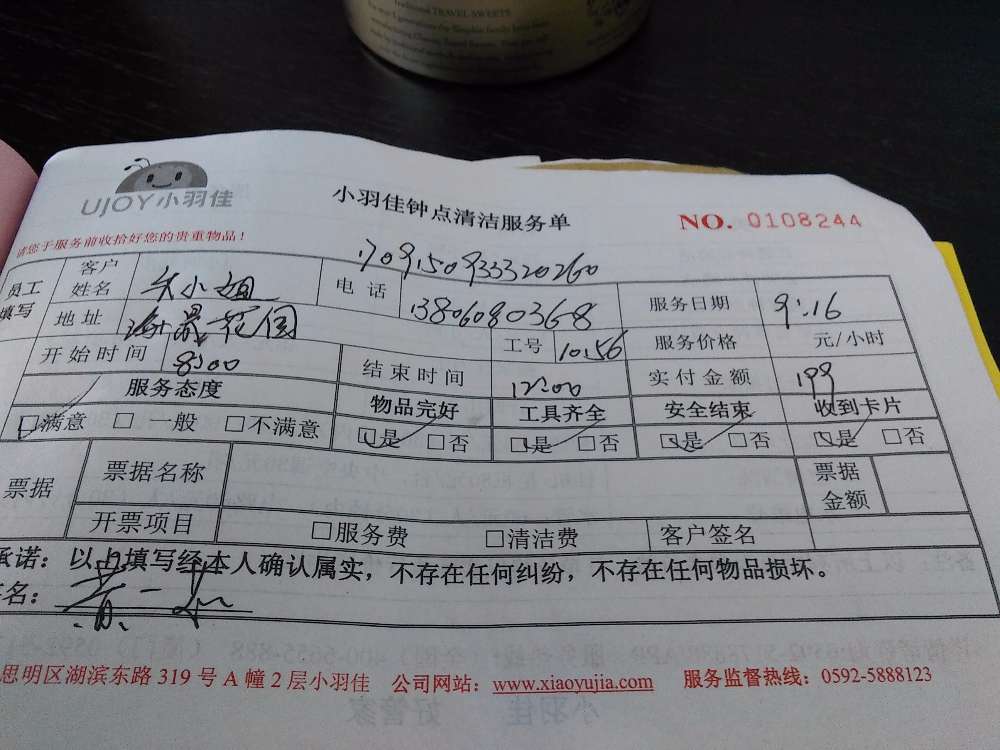 Traditional TRAVEL SWEETS
UJOY小羽佳
小羽佳钟点清洁服务单
NO. 0108244
请您于服务前收拾好您的贵重物品！
1709150933320260
员工填写 客户姓名 小姐 电话 13806080368 服务日期 9:16
地址 海景花园 工号 1056 服务价格 元/小时
开始时间 8:00 结束时间 12:00 实付金额 199
服务态度 物品完好 工具齐全 安全结束 收到卡片
□满意 □一般 □不满意 □是 □否 □是 □否 □是 □否 □是 □否
票据 票据名称 票据金额
开票项目 □服务费 □清洁费 客户签名
承诺：以上填写经本人确认属实，不存在任何纠纷，不存在任何物品损坏。
签名：
思明区湖滨东路 319 号 A 幢 2 层小羽佳 公司网站：www.xiaoyujia.com 服务监督热线：0592-5888123